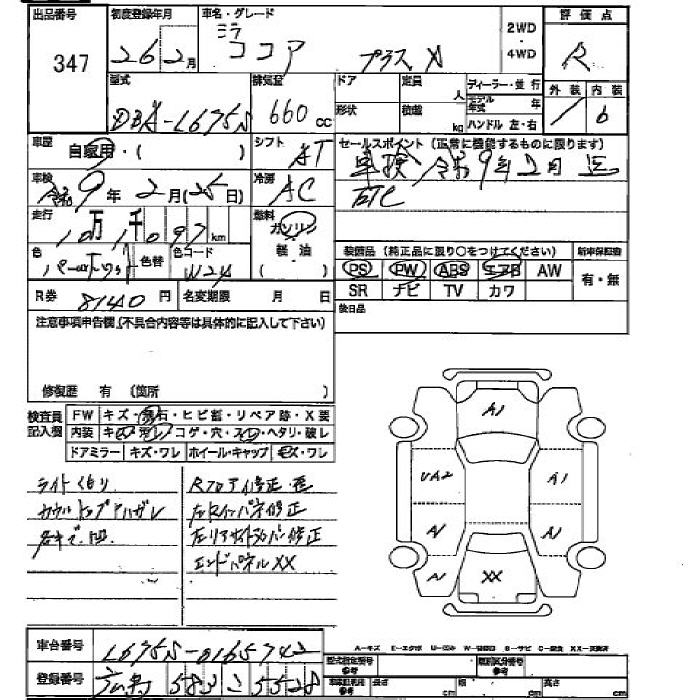 出品番号 初度登録年月 車名・グレード 2WD・4WD 評価点
347 26 2月 ミラ ココア プラス X R
型式 排気量 ドア 定員 人 ディーラー・並行 外装 内装
DBA-L675S 660cc 形状 積載 kg モデル年式 年 ハンドル 左・右 / 6
車歴 自家用・( ) シフト AT セールスポイント (正常に機能するものに限ります)
車検 令和9年2月(25日) 冷房 AC 車検 令和9年2月 迄
ETC
走行 10万1千097km 燃料 ガソリン 軽油 ( )
装備品 (純正品に限り○をつけてください) 新車保証書
色 パールホワイト 色替 色コード W24 PS PW ABS エアB AW 有・無
R券 8140円 名変期限 月 日 SR ナビ TV カワ
後日品
注意事項申告欄(不具合内容等は具体的に記入して下さい)
修復歴 有 (箇所 )
検査員記入欄 FW キズ・飛石・ヒビ割・リペア跡・X要
内装 キズ・汚レ・コゲ・穴・スレ・ヘタリ・破レ
ドアミラー キズ・ワレ ホイール・キャップ キズ・ワレ
ライトくもり Rフロア修正・歪
カウルトップハガレ 左Rインパネ修正
各キズ、凹 左リアサイドメンバー修正
エンドパネルXX
A1
UA2 A1
A1 A1
A1 XX
A-キズ E-エクボ U-凹み W-補修跡 S-サビ C-腐食 XX-交換済
車台番号 L675S-0165742
型式指定番号 参考 類別区分番号 参考
登録番号 広島 583 こ 5528
車体証明用 参考 長さ cm 幅 cm 高さ cm